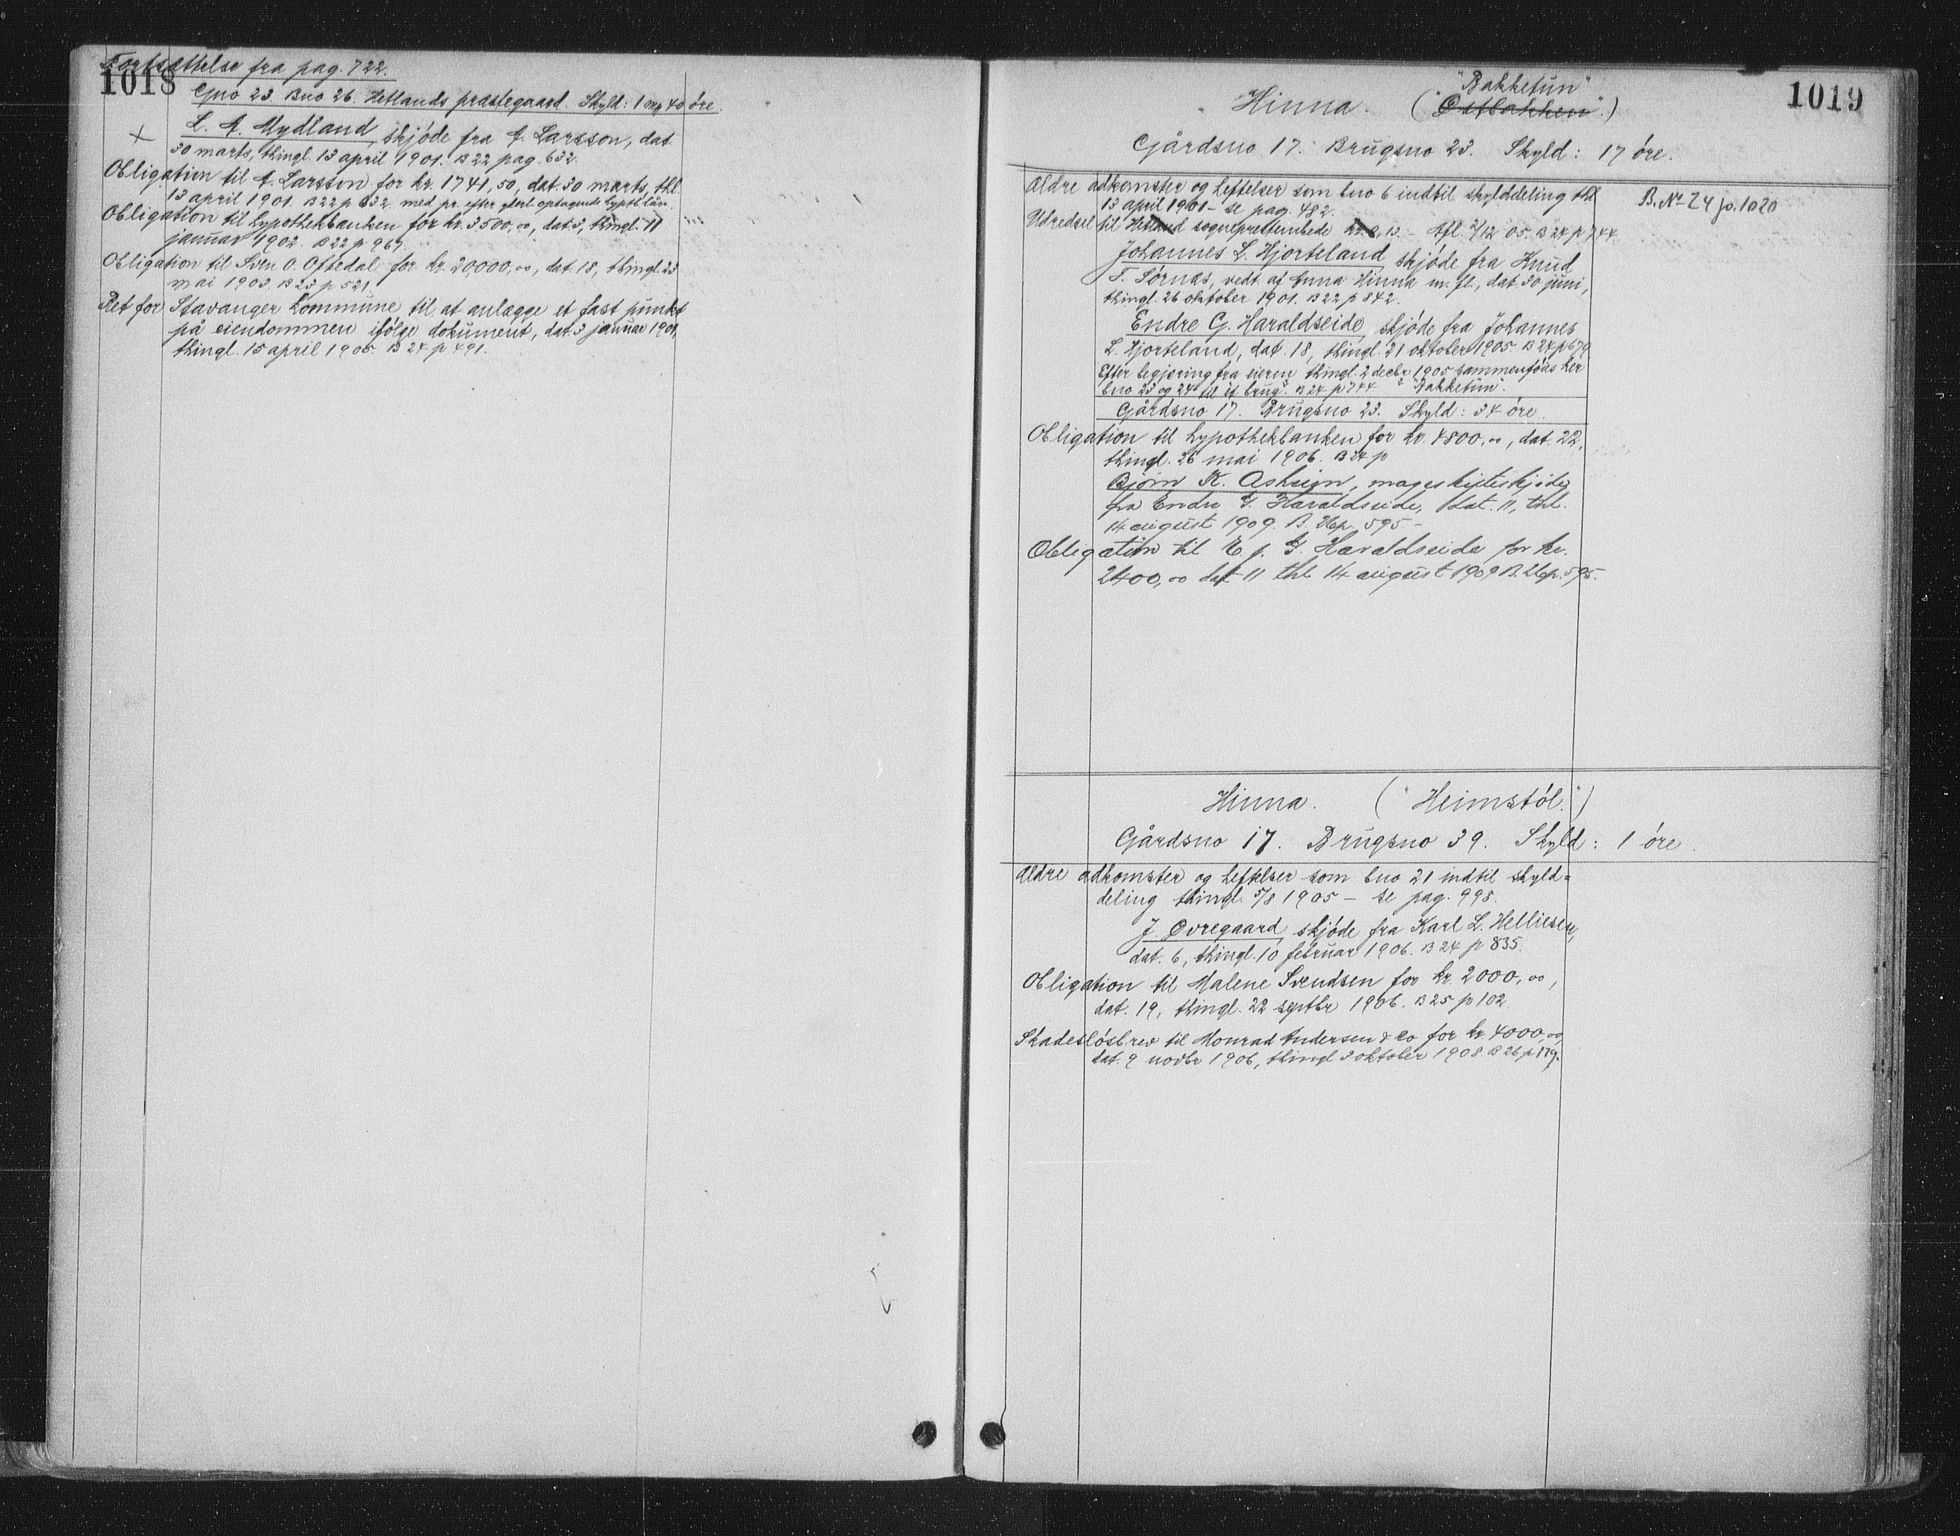 1018
Fortsættelse fra pag. 722.
Gno 23. Bno 26. Hetlands præstegaard. Skyld: 1 mk 40 øre.
L. A. Mydland, skjöde fra A. Larsson, dat.
30 marts, thingl. 13 april 1901. B 22 pag. 632.
Obligation til A. Larsson for kr. 1741,50, dat. 30 marts, thl.
13 april 1901. B 22 p 632 med pr. efter optagende hypth.lån.
Obligation til hypothekbanken for kr. 3500,00, dat. 3, thingl. 11
januar 1902. B 22 p 967.
Obligation til Sven O. Oftedal for kr. 20,000,00, dat. 18, thingl. 23
mai 1903. B 23 p. 521.
Ret for Stavanger kommune til at anlægge et fast punkt
på eiendommen ifölge dokument, dat. 3 januar 1901,
thingl. 15 april 1905. B 24 p 491.
1019
"Bakketun"
Hinna. ("Östbakken".)
Gårdsno 17. Brugsno 23. Skyld: 17 öre.
Ældre adkomster og heftelser som bno 6 indtil skylddeling thl
13 april 1901 - se pag. 482.
B. No 24 p. 1020
Udredsel til Hetland sogneprestembede kr. 2,13. - Afl. 2/12 05. B 24 p 744.
Johannes L. Hjorteland skjöde fra Knud
T. Sörnæs, vedt. af Anna Hinna m. fl., dat 30 juni,
thingl. 26 oktober 1901. B 22 p 842.
Endre G. Haraldseide, skjöde fra Johannes
L. Hjorteland, dat. 18, thingl. 21 oktober 1905. B 24 p 679
Efter begjæring fra eieren thingl. 2 decbr 1905 sammenföies her
bno 23 og 24 til et brug: B 24 p 744 "Bakketun".
Gårdsno 17. Brugsno 23. Skyld: 34 öre.
Obligation til hypothekbanken for kr. 4800,00, dat. 22,
thingl. 26 mai 1906. B 24 p
Björn K. Asheim, mageskifteskjöde
fra Endre G. Haraldseide, dat. 11, thl.
14 august 1909. B. 26 p. 595 -
Obligation til E. G. Haraldseide for kr.
2400,00 dat 11 thl 14 august 1909 B. 26 p. 595.
Hinna. ("Heimstöl.")
Gårdsno 17. Brugsno 39. Skyld: 1 öre.
Ældre adkomster og heftelser som bno 21 indtil skyld=
deling thingl. 5/8 1905 - se pag. 998.
J. Övregaard skjöde fra Karl L. Helliesen,
dat. 6, thingl. 10 februar 1906. B 24 p 835.
Obligation til Malene Svendsen for kr. 2000,00,
dat. 19, thingl. 22 septbr 1906. B 25 p 102.
Skadeslösbrev til Monrad Andersen & Co for kr 4000,00,
dat. 9 novbr 1906, thingl 3 oktober 1908. B 26 p 179.